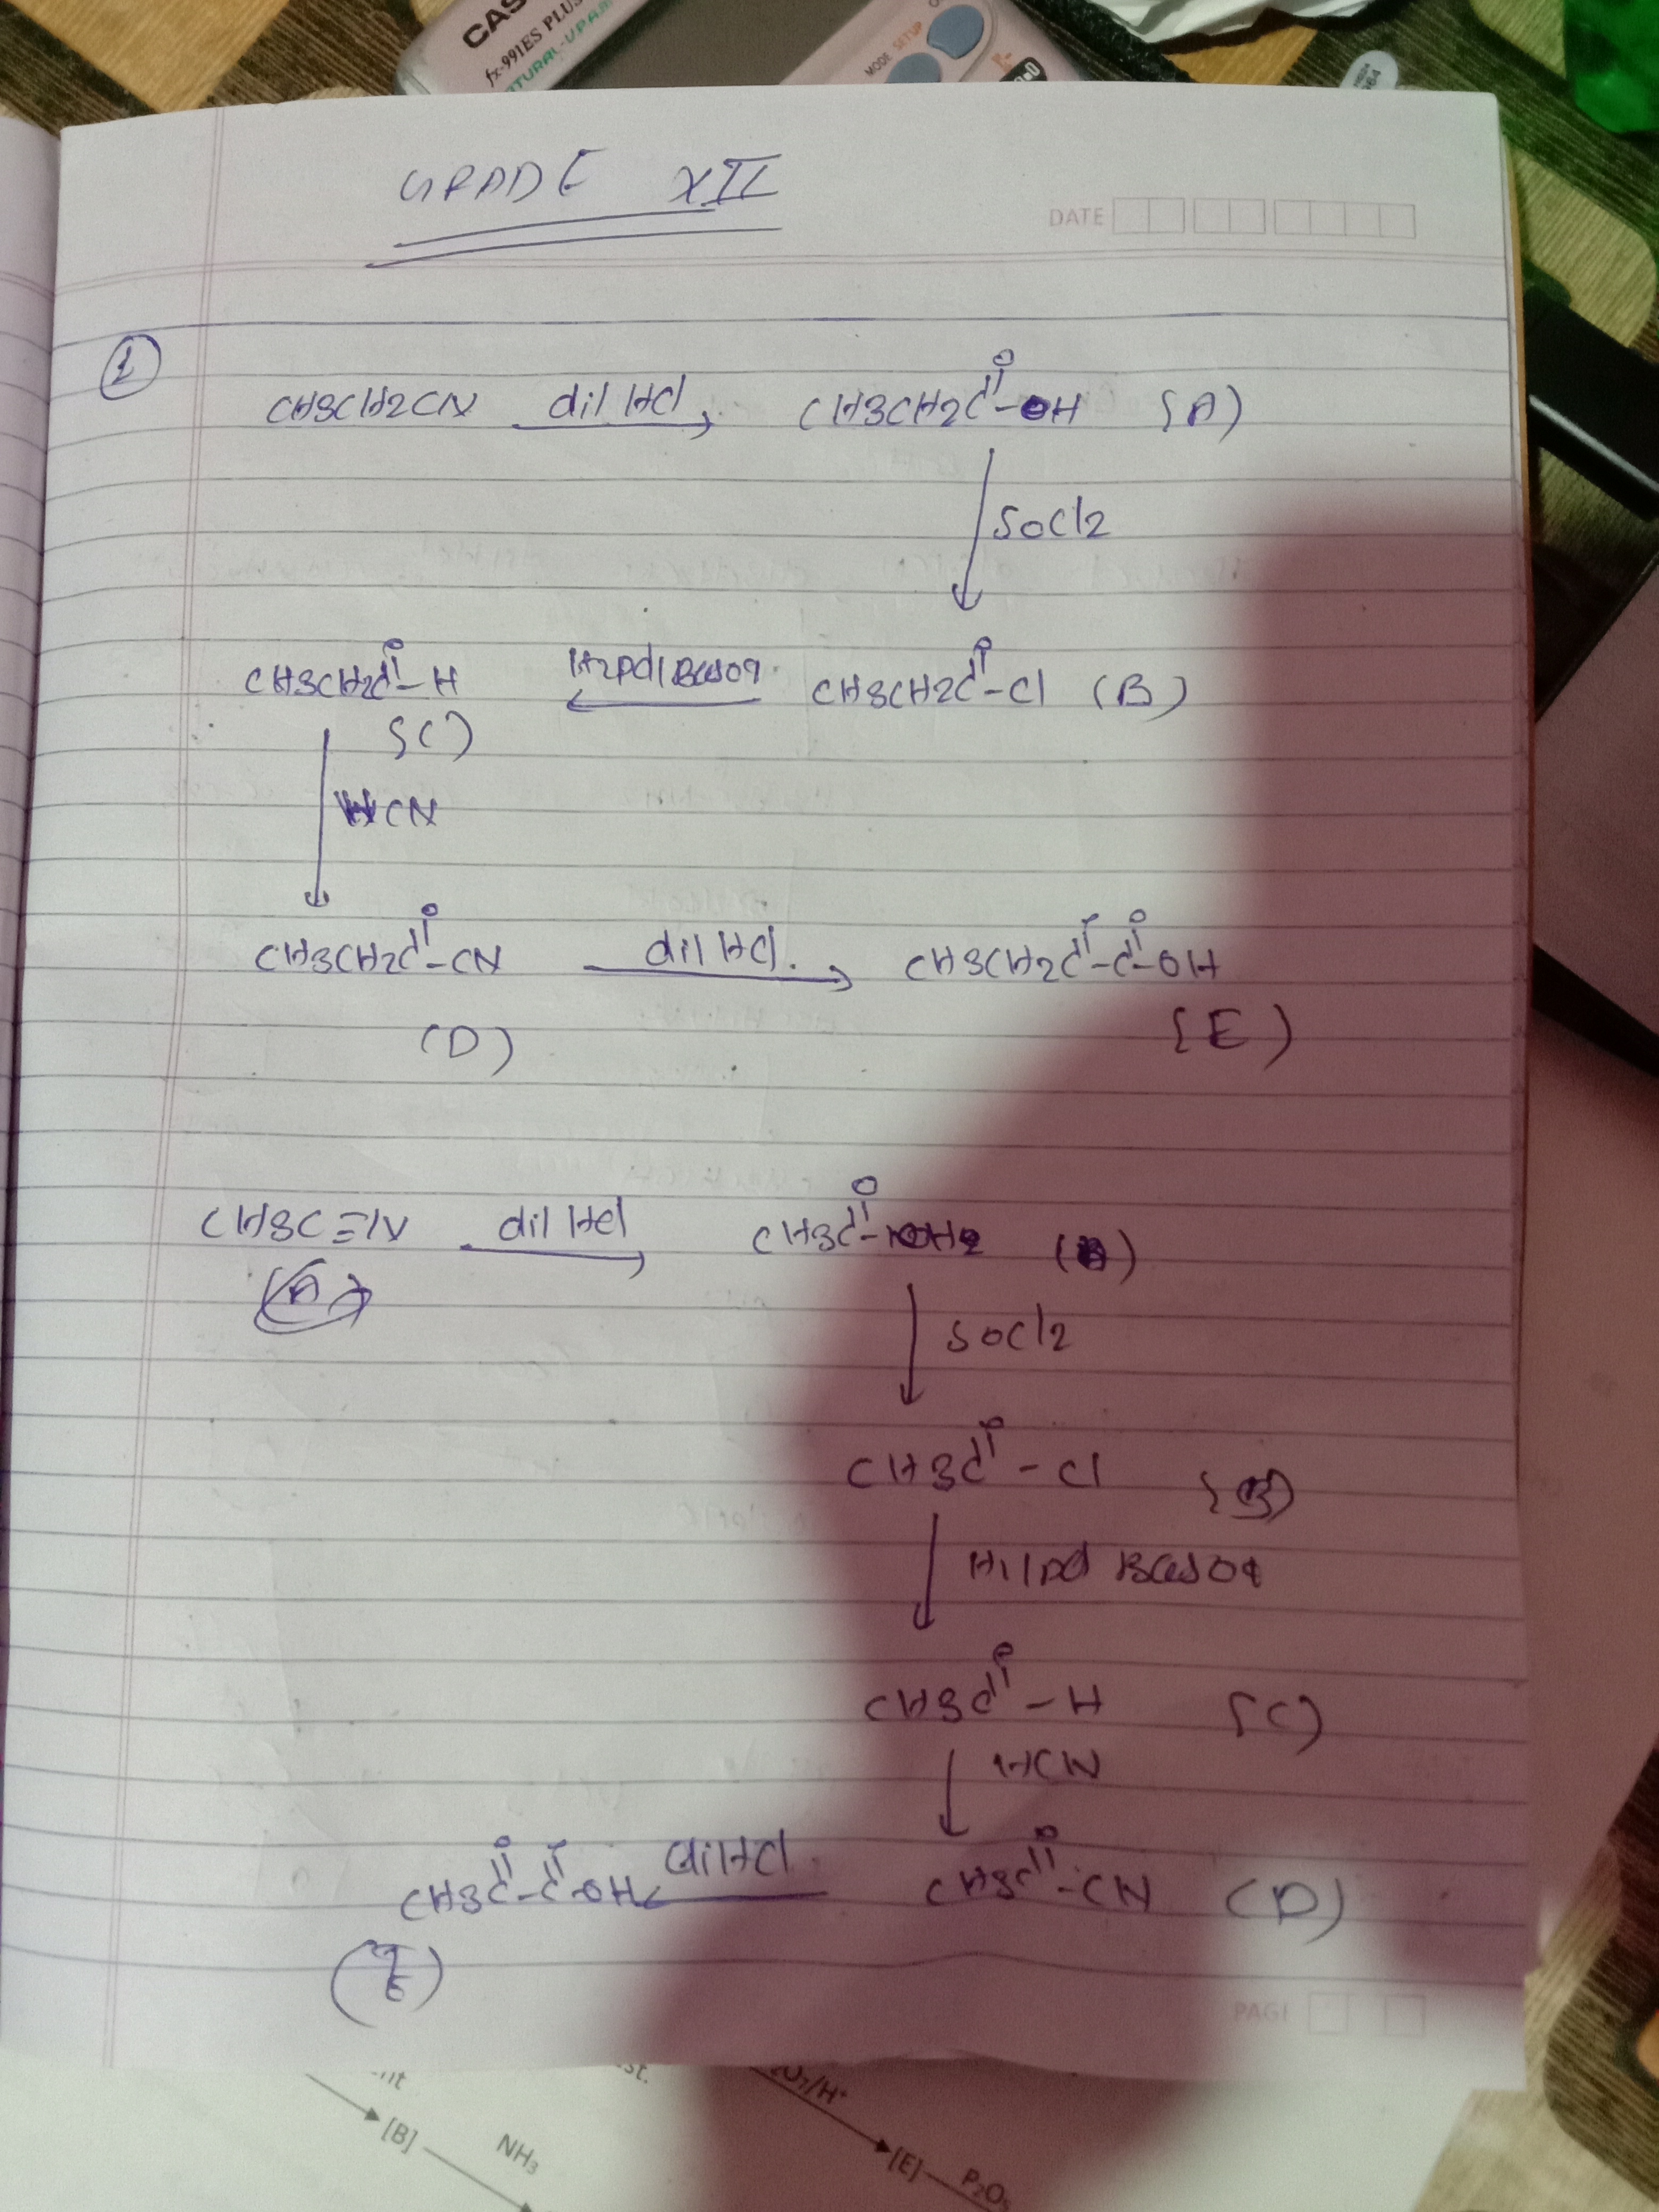 CAS
fx-991ES PLUS
NATURAL-V.P.A.M.
MODE SETUP
GRADE XII
DATE
1
CH3CH2CN dil HCl CH3CH2C-OH (A)
O
SOCl2
O O
CH3CH2C-H H2Pd/BaSO4 CH3CH2C-Cl (B)
(C)
HCN
O O O
CH3CH2C-CN dil HCl. CH3CH2C-C-OH
(D) (E)
O
CH3C≡N dil HCl CH3C-
(A) (B)
SOCl2
O
CH3C-Cl (B)
Pd BaSO4
O
CH3C-H (C)
HCN
O O O
CH3C-C-OH dil HCl. CH3C-CN (D)
(E)
PAGE
st.
2O7/H+
[B]
NH3
[E]
P2O5